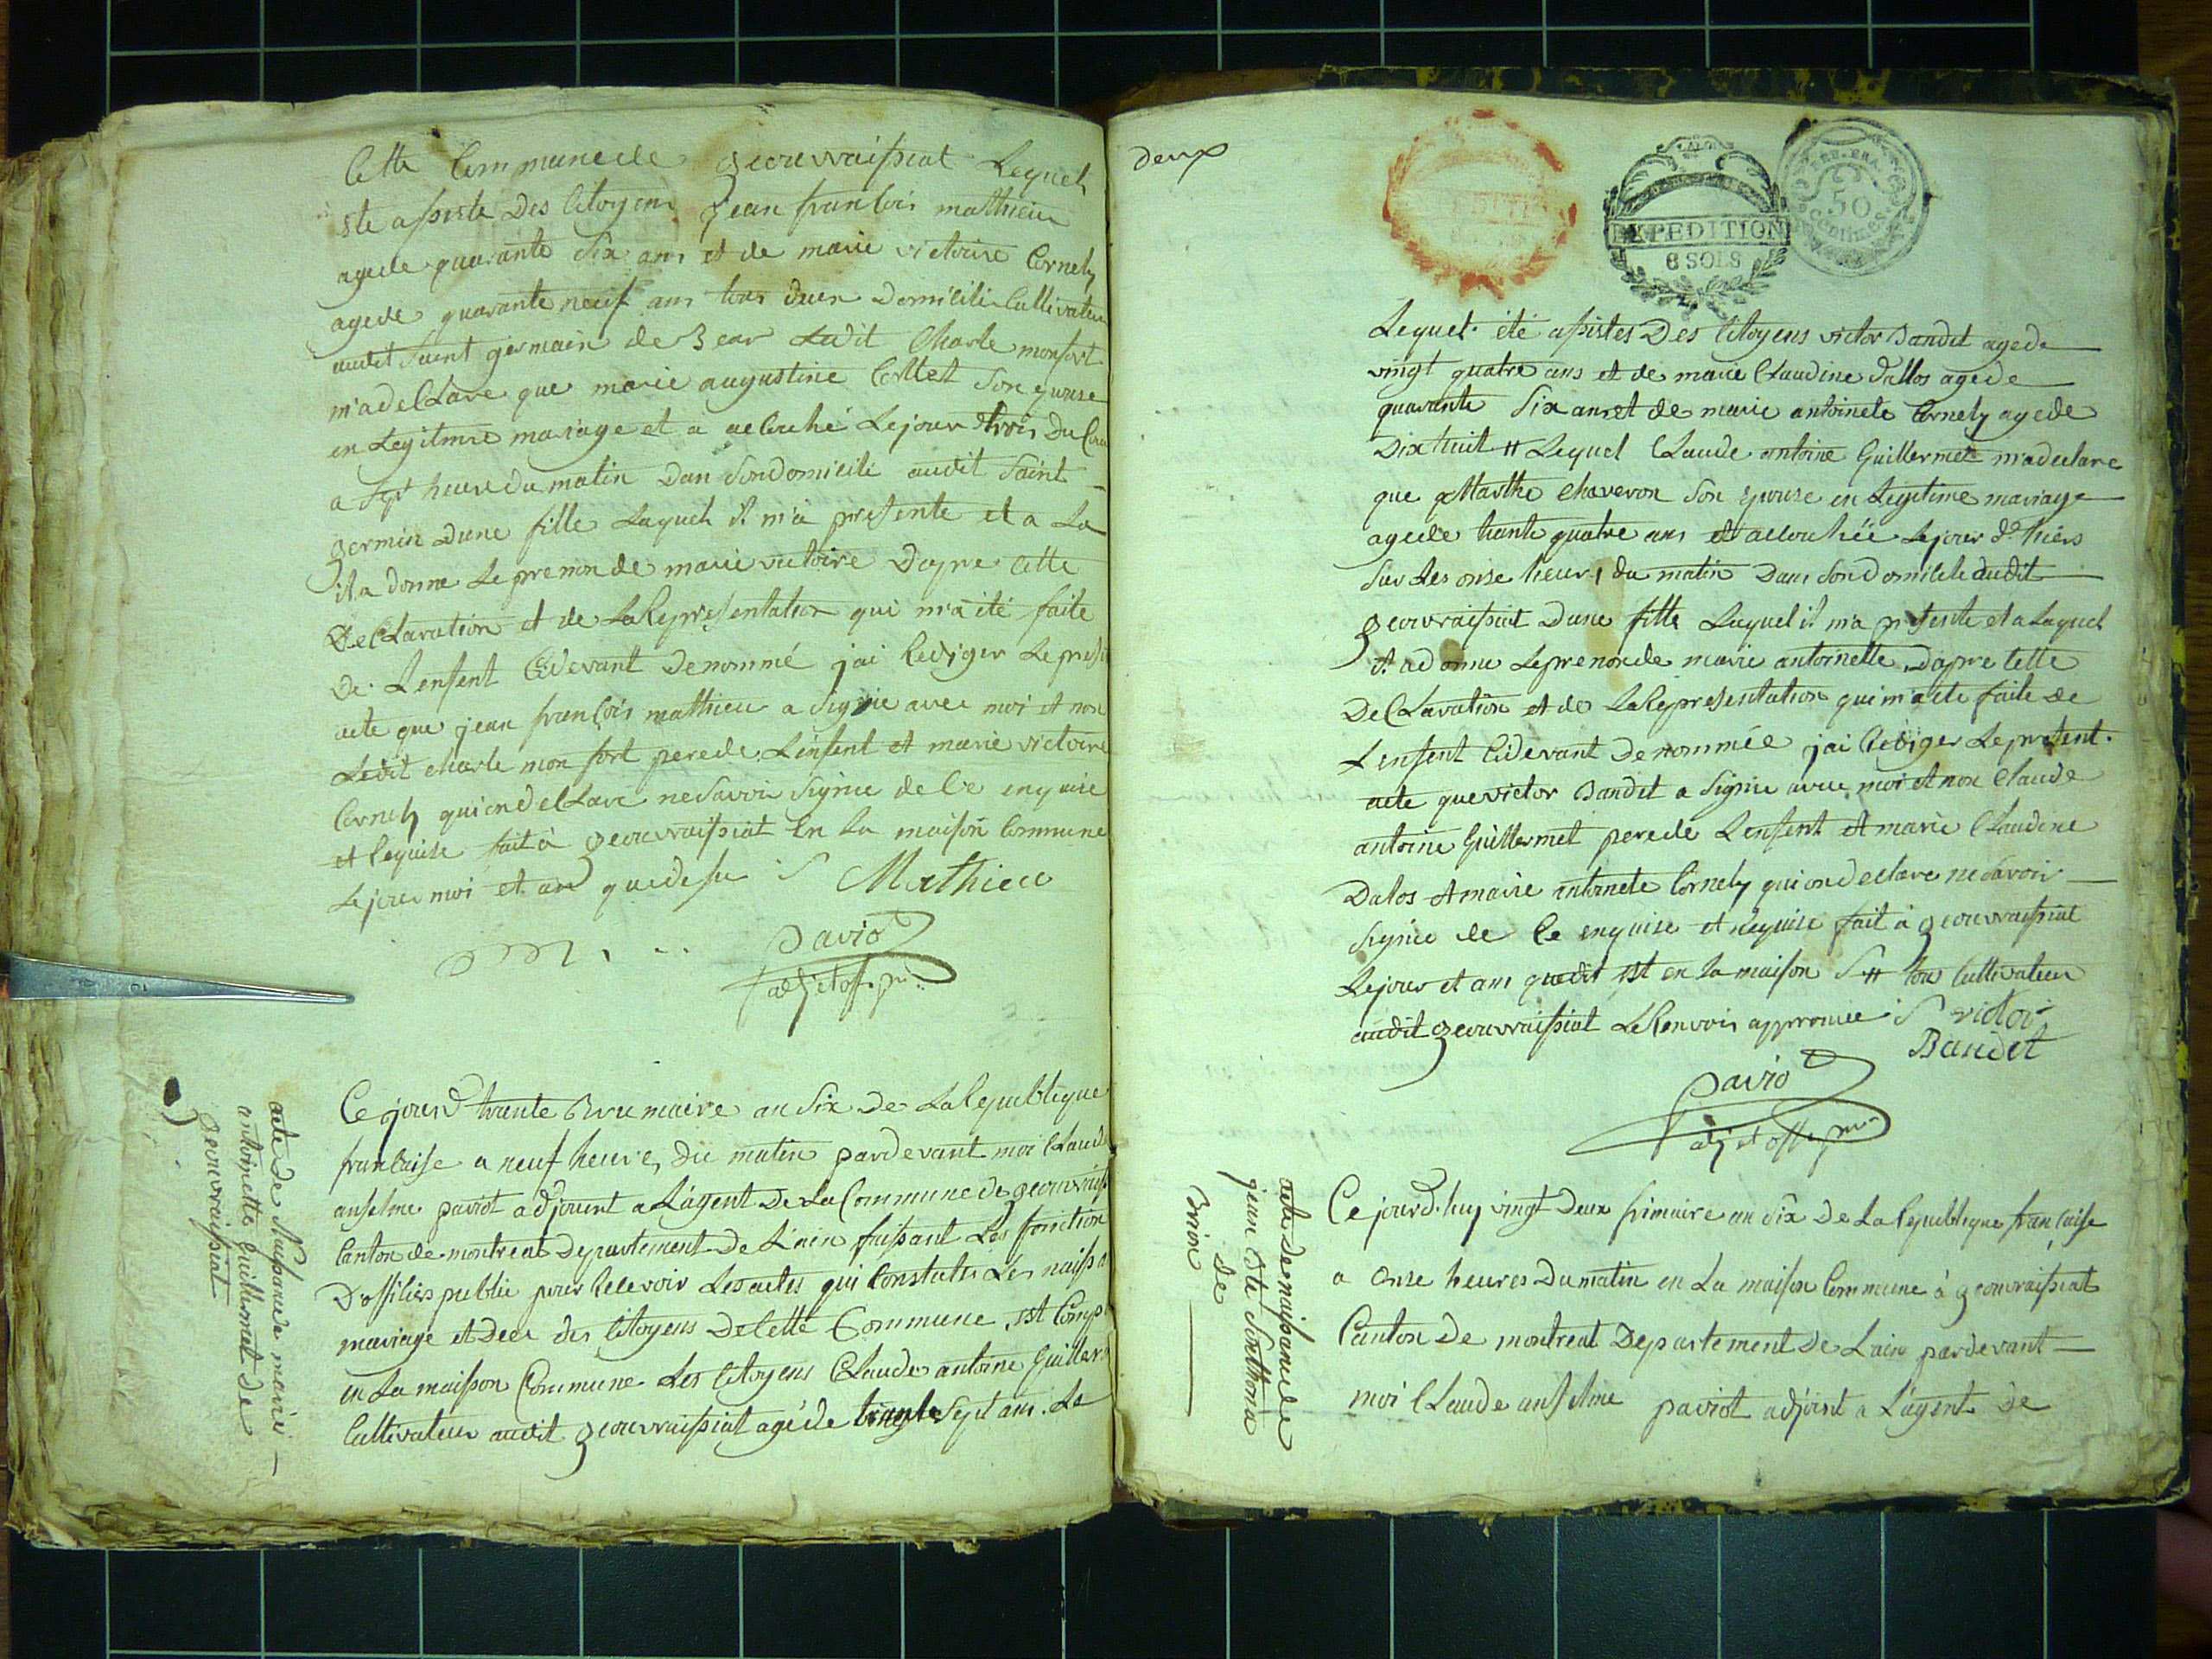 Cette Commune de geouvraissiat Lequel
ste assiste Des Citoyens Jean francois matthieu
agede quarante Six ans et de marie victoire Cornely
agede quarante neuf ans tous deux Domicilie Cultivateur
audit Saint germain de Bear Ledit Charle monfort
m'a declare que marie augustine Collet Son epouse
en Legitime mariage et a acCouché Le jour trois Du
a Sept heure du matin Dan Sondomicile audit Saint
germin Dune fille Laquel il m'a presente et a La
il a donne Le prenon de marie victoire Dapre Cette
DeClaration et de La Representation qui m'a été faite
De L'enfent Cidevant Denommé j'ai Rediger Le presen
acte que jean françois matthieu a Signie avec moi et non
Ledit charle mon fort perede Lenfent et marie victoire
Cornely qui on deClare ne Savoir Signie de Ce enquise
et Requise fait à geouvraissiat En La maison Commune
Le jour moi et an que de su S Mathieu
Paviot
adj et off. pu.
acte de Naissance marie
antoinette Guillermet de
geouvraissiat
Ce jourd trante Brumaire an Six De La Republique
francaise a neuf heure, du matin pardevant moi Claude
anselme paviot adjount a L'agent De La Commune de geouvraiss
Canton de montreal Departement De L'ain faissant Les fonction
D'offiliers public pour Recevoir Les actes qui Constates Les naissa
mariage et Dece des Citoyens De Cette Commune est Comp
en La maisson Commune Les Citoyens Claude antoine Guiller
Cultivateur audit geouvraissiat agéde Sept ans. Le
Deux
EXPEDITION
6 SOLS
REP. FRA.
50
Centimes
Lequel été assistes Des Citoyens victor Bandet agede
vingt quatre ans et de marie Claudine Dallos agede
quarante Six ans et de marie antoinete Cornely agede
Dix huit # Lequel Claude antoine Guillermet m'adeclare
que Marthe Chaveron Son epouse en Legitime mariage
agede trante quatre ans et accouchée Le jour d'hiers
Sur Les onse heures du matin Dans Son Domicile audit
geouvraissiat Dune fille Laquel il m'a presente et a Laquel
il a donne Le prenon de marie antoinette Dapre Cette
DeClaration et de La Representation qui m'a ete faite de
L'enfent Cidevant Denommée j'ai Rediger Le present
acte que victor Bandet a Signie avec moi et non Claude
antoine Guillermet perede Lenfent et marie Claudine
Dalos et marie antoinete Cornely qui on declare ne Savoir
Signie de Ce enquise et Requise fait à geouvraissiat
Le jour et ans quedit est en La maison S # tou Cultivateur
audit geouvraissiat Le Renvoi approuvee S victor
Bandet
Paviot
adj et off pu
acte de naissance de
jean Bte Sonthonna
de
Brion
Ce jourd.huy vingt Deux frimaire an Six De La Republique francaise
a onse heures Dumatin en La maison Commune à geouvraissiat
Canton De montreal Departement De L'ain pardevant
moi Claude anselme paviot adjoint a L'agent De